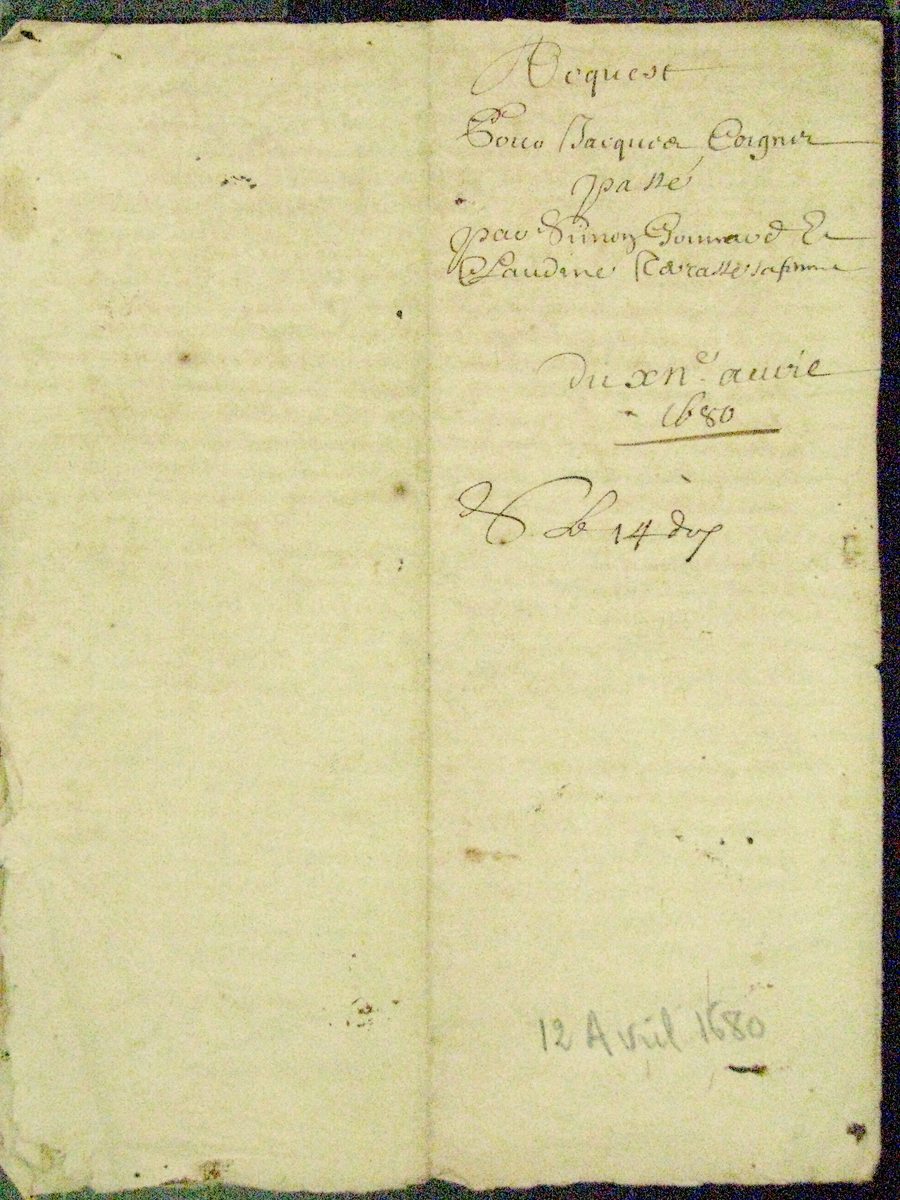 Acquest
Pour Jacques Coignet
passé
par Simon Gonnard Et
Claudine sa femme
du xiie. auvril
1680
14
12 Avril 1680